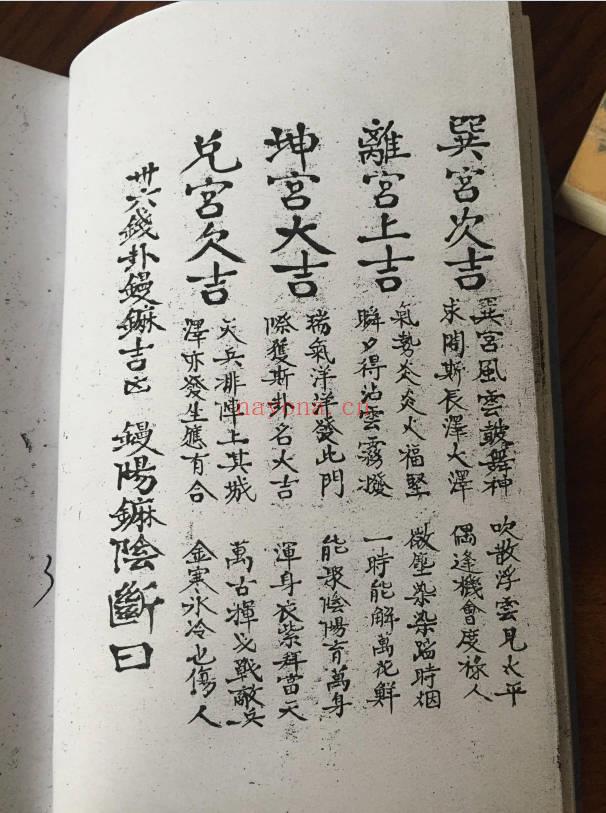 巽宮次吉
巽宮風雲鼓舞神 吹散浮雲見太平
求閗斯長澤大澤 偶逢機會度祿人
離宮上吉
氣勢炎炎火福堅 微塵染染蹈時烟
瞬夕得沾雲霧撥 一時能解萬花鮮
坤宮大吉
瑞氣洋洋發此門 能聚陰陽育萬身
際獲斯卦名大吉 渾身衣紫拜當天
兌宮欠吉
天兵排陣上其城 萬古揮戈戰敵兵
澤亦發生應有合 金寒水冷也傷人
卅六錢卦鏝鏕吉凶 鏝陽鏕陰斷曰
nayona.cn